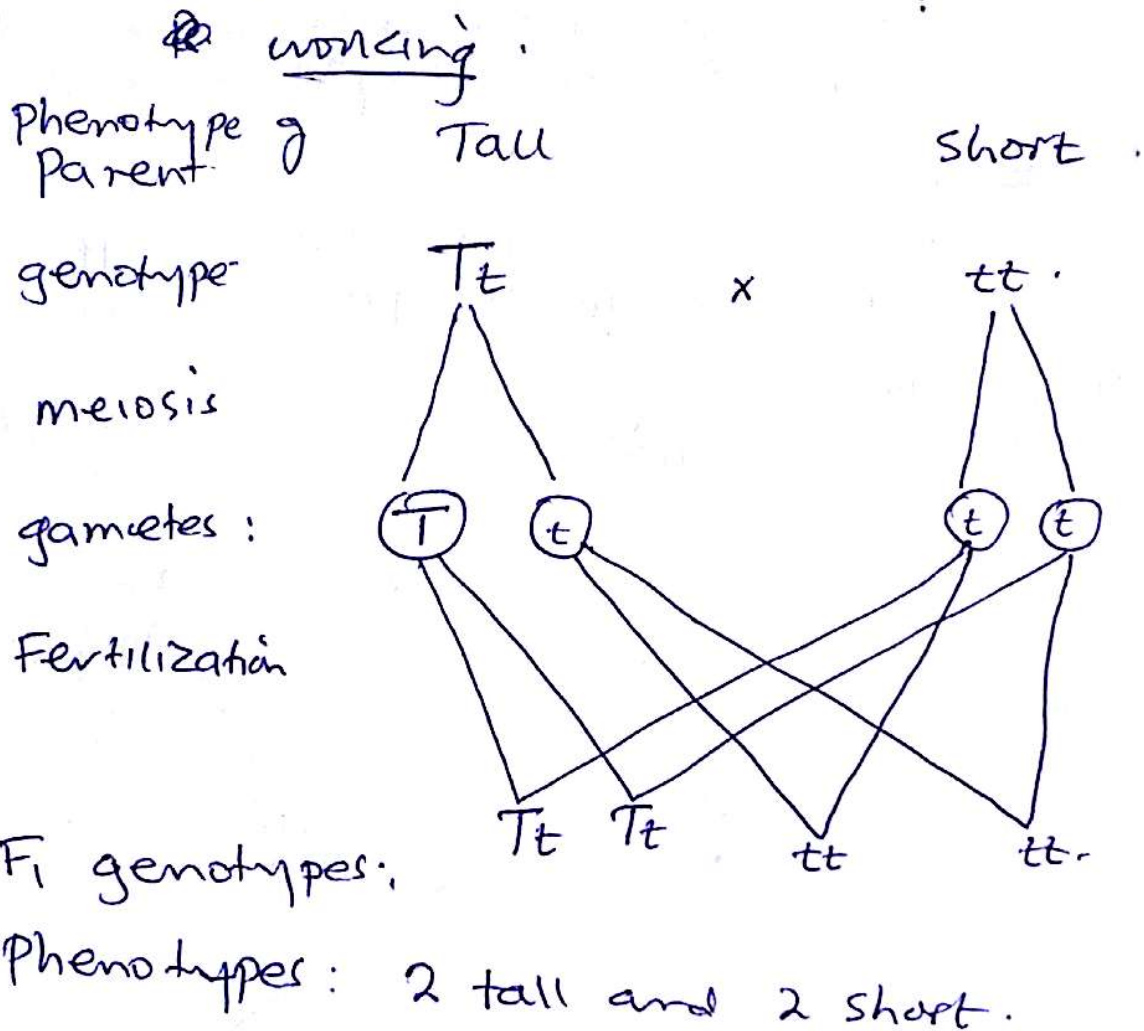 working .
Phenotype g Tall short .
Parent
genotype Tt x tt .
meiosis
gametes : T t t t
Fertilization
Tt Tt tt tt .
F1 genotypes :
Phenotypes : 2 tall and 2 short .